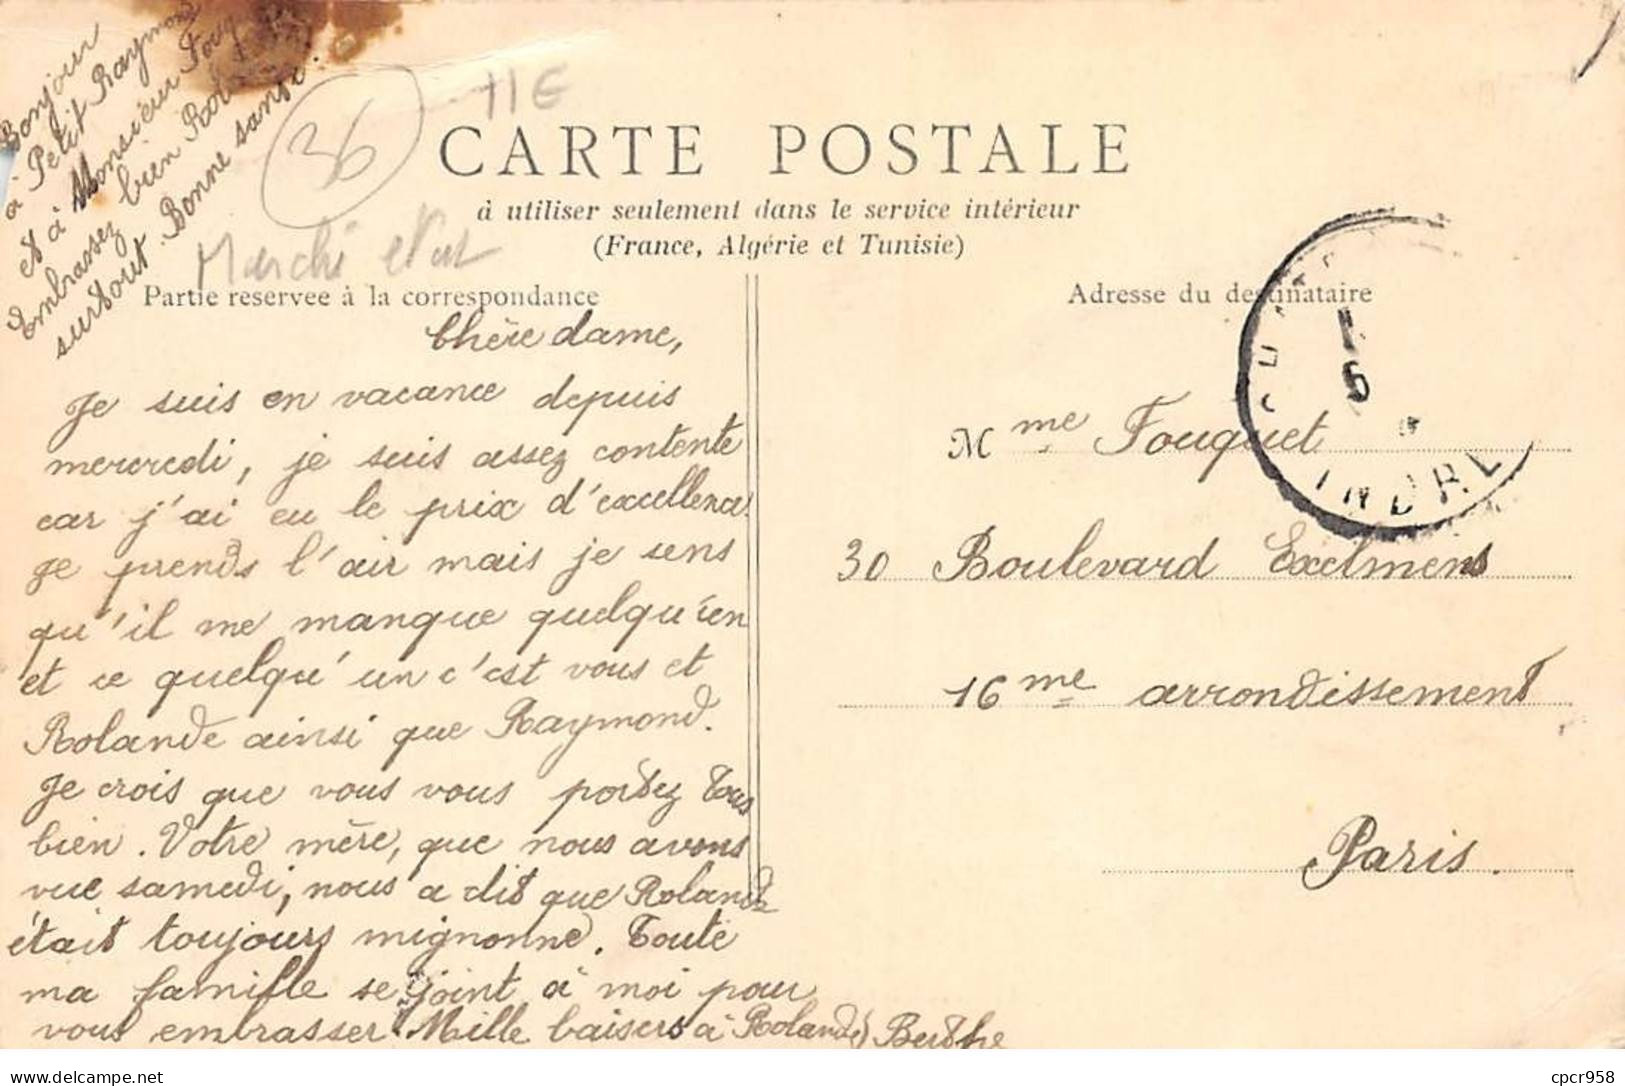 Bonjour
à Petit Raymond
et à Monsieur
Embrassez bien
surtout. Bonne santé.
36
11€
CARTE POSTALE
à utiliser seulement dans le service intérieur
(France, Algérie et Tunisie)
Marché
Partie reservee à la correspondance
Adresse du destinataire
Chère dame,
Je suis en vacance depuis
mercredi, je suis assez contente
car j'ai eu le prix d'excellence.
Je prends l'air mais je sens
qu'il me manque quelqu'un
et ce quelqu'un c'est vous et
Rolande ainsi que Raymond.
Je crois que vous vous portez tous
bien. Votre mère, que nous avons
vue samedi, nous a dit que Rolande
était toujours mignonne. Toute
ma famille se joint à moi pour
vous embrasser. Mille baisers à Rolande Berthe
Mme Fouquet
30 Boulevard Exelmens
16me arrondissement
Paris.
5
INDRE
delcampe.net
cpcr958